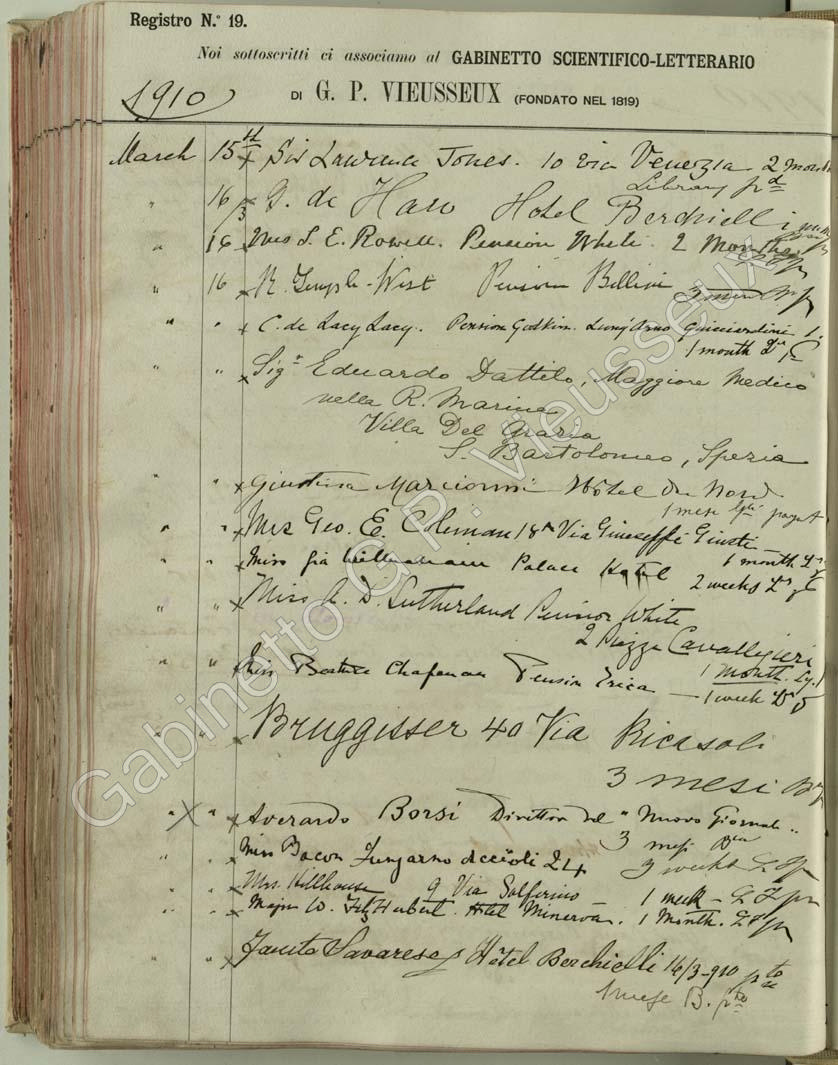 Registro N.° 19.
Noi sottoscritti ci associamo al GABINETTO SCIENTIFICO-LETTERARIO
DI G. P. VIEUSSEUX (FONDATO NEL 1819)
1910
March 15 x Sir Lawrence Jones. 10 via Venezia 2 months
Library pd
16/3 x G. de Haro Hotel Berchielli
" 16 x L. E. Rowell. Pension White. 2 Months
" 16 x R. Temple-West Pension Bellini
" " x C. de Lacy Lacy. Pension Godkin. Lung'Arno Guicciardini 1.
1 month
" " x Sigr Eduardo Dattilo, Maggiore Medico
nella R. Marina
Villa Del Grazia
S. Bartolomeo, Spezia
" " x Giustina Marcionni Hôtel du Nord
1 mese
" " x Mrs Geo. E. Coleman 18A Via Giuseppe Giusti
1 month
" " x Miss Palace Hotel
2 weeks
" " x Miss A. D. Sutherland Pension White
2 Piazza Cavalleggieri
1 month.
" " x Miss Beatrice Chapman Pension Erica — 1 week
" " x Bruggisser 40 Via Ricasoli
3 mesi
" X " x Averardo Borsi Direttor del "Nuovo Giornale"
3 mesi
" " x Miss Bacon Lungarno Acciaioli 24 3 weeks
" " x Mrs. Hillhouse 9 Via Solferino — 1 week
" " x Major W. FitzHerbert. Hotel Minerva. 1 Month.
" " x Savarese Hôtel Berchielli 16/3-910
1 mese B.
Gabinetto G.P. Vieusseux